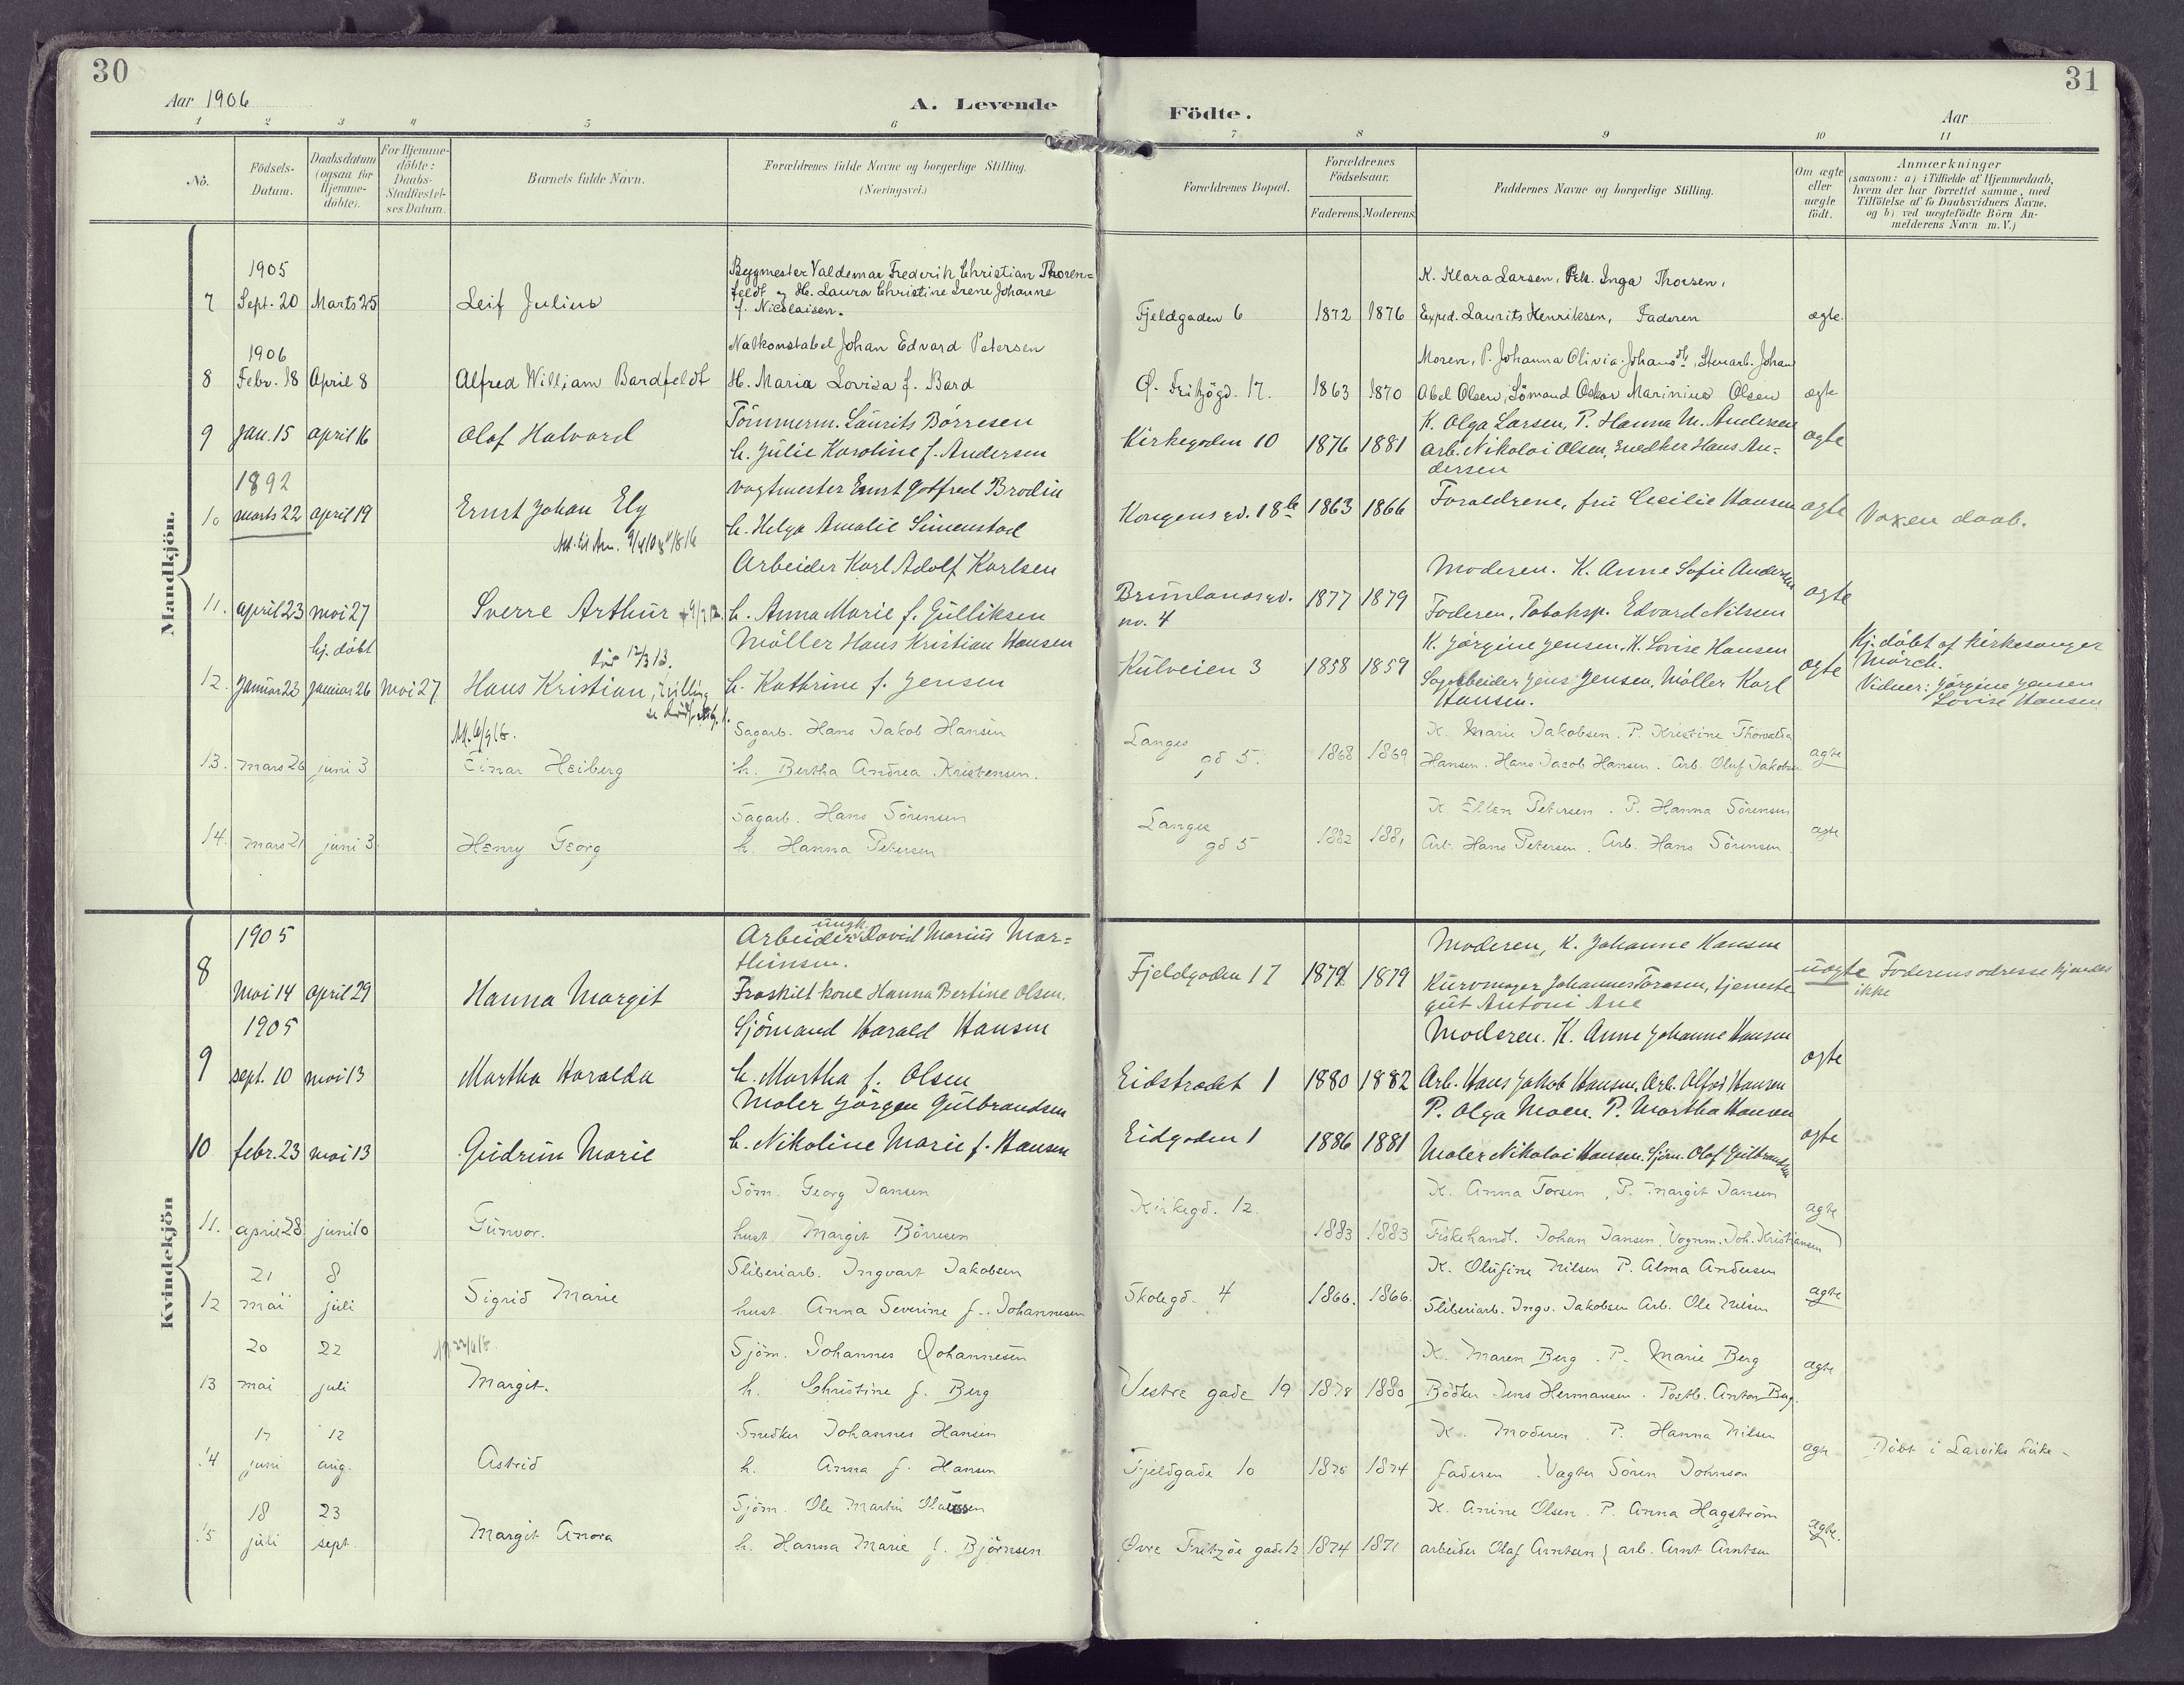 30
Aar 1906
A. Levende
1 2 3 4 5 6
No.
Födsels-Datum.
Daabsdatum (ogsaa for Hjemme-döbte).
For Hjemme-döbte: Daabs-Stadfæstel-ses Datum.
Barnets fulde Navn.
Forældrenes fulde Navne og borgerlige Stilling.
(Næringsvei.)
Födte.
31
Aar
7 8 9 10 11
Forældrenes Bopæl.
Forældrenes Födselsaar.
Faderens. Moderens.
Faddernes Navne og borgerlige Stilling.
Om ægte eller uægte födt.
Anmærkninger
(saasom: a) i Tilfælde af Hjemmedaab, hvem der har forrettet samme, med Tilföielse af to Daabsvidners Navne, og b) ved uægtefödte Börn Anmelderens Navn m. V.)
Mandkjön.
1905
7 Sept. 20 Marts 25 Leif Julius
Bygmester Valdemar Frederik Christian Thoren=
feldt og H. Laura Christine Irene Johanne
f. Nicolaisen.
Fjeldgaden 6 1872 1876
K. Klara Larsen, Pek. Inga Thorsen,
Exped. Laurits Henriksen, Faderen
ægte.
1906
8 Febr. 18 April 8 Alfred William Bardfeldt
Natkonstabel Johan Edvard Petersen
H. Maria Lovisa f. Bard
Ø. Fritzögd. 17. 1863 1870
Moren, P. Johanna Olivia Johansdt., Stenarb. Johan
Abel Olsen, Sömand Oskar Marinius Olsen
ægte
9 Jan. 15 april 16 Olaf Halvard
Tömmerm. Laurits Börresen
h. Julie Karoline f. Andersen
Kirkegaden 10 1876 1881
K. Olga Larsen, P. Hanna M. Andersen
Arb. Nikolai Olsen, Snedker Hans An=
dersen
ægte
1892
10 marts 22 april 19 Ernst Johan Ely
vagtmester Ernst Gotfred Brodin
h. Helga Amalie Simenstad
Kongensgd. 18b 1863 1866
Forældrene, fru Cecilie Hansen
ægte
Voxen daab.
11. april 23 mai 27 Sverre Arthur
Arbeider Karl Adolf Karlsen
h. Anna Marie f. Gulliksen
Brunlanesgd.
no. 4
1877 1879
Moderen. K. Anne Sofie Andersen
Faderen, Tobaksp. Edvard Nilsen
ægte
hj. döbt
12. Januar 22 januar 26 mai 27 Hans Kristian, tvilling
död 12/3 13.
Möller Hans Kristian Hansen
h. Kathrine f. Jensen
Kulveien 3 1858 1859
K. Jörgine Jensen. K. Lovise Hansen
Sagarbeider Jens Jensen, Möller Karl
Hansen.
ægte
Hj. döbt af kirkesanger
Mörch.
Vidner: Jörgine Jensen
Lovise Hansen
13. mars 26 juni 3 Einar Heiberg
Sagarb. Hans Jakob Hansen
h. Bertha Andrea Kristensen.
Langes
gd 5. 1868 1869
K. Marie Jakobsen. P. Kristine Thorvalda
Hansen. Hans Jacob Hansen. Arb. Oluf Jakobsen
ægte
14. mars 21 juni 3 Henry Georg
Sagarb. Hans Sörensen
h. Hanna Petersen
Langes
gd 5 1882 1881
K Ellen Petersen. P. Hanna Sörensen
Arb. Hans Petersen. Arb. Hans Sörensen.
ægte
Kvindekjön
1905
8 Mai 14 april 29 Hanna Margit
Arbeider ungk. David Marius Mar=
thinsen.
Fraskilt kone Hanna Bertine Olsen.
Fjeldgaden 17 1879 1879
Moderen, K. Johanne Hansen
Kurvmager Johannes Toresen, tjeneste
gut Antoni Ane
uægte
Faderens adresse kjendes
ikke
1905
9 sept. 10 mai 13 Martha Haralda
Sjömand Harald Hansen
h. Martha f. Olsen
Eidstrædet 1 1880 1882
Moderen. K. Anne Johanne Hansen
Arb. Hans Jakob Hansen. Arb. Alfred Hansen
ægte
10 febr. 23 mai 13 Gudrun Marie
Maler Jörgen Gulbrandsen
h. Nikoline Marie f. Hansen
Eidgaden 1 1886 1881
P. Olga Moen. P. Martha Hansen
Maler Nikolai Hansen. Sjöm. Olaf Gulbrandsen
ægte
11. april 28 juni 10 Gunvor.
Söm. Georg Jansen
hust. Margit Börresen
Kirkegd. 12. 1883 1883
K. Anna Torsen, P. Margit Jansen
Fiskehandl. Johan Jansen, Vognm. Joh. Kristiansen
ægte
12 21 mai 8 juli Sigrid Marie
Sliberiarb. Ingvart Jakobsen
hust. Anna Severine f. Johannesen
Skolegd. 4 1866. 1866.
K. Olufine Nilsen P. Alma Andersen
Sliberiarb. Ingv. Jakobsen Arb. Ole Nilsen
ægte
13 20 mai 22 juli Margit.
Sjöm. Johannes Johannesen
h. Christine f. Berg
Vestre gade 19 1878 1880
K. Maren Berg. P. Marie Berg
Bödker Jens Hermansen. Postb. Anton Berg.
ægte
14 17 juni 12 aug. Astrid
Snedker Johannes Hansen
h. Anna f. Hansen
Fjeldgade 10 1875 1874
K. Moderen. P. Hanna Nilsen
Faderen. Vagter Sören Johnson
ægte
Döbt i Larviks kirke
15 18 juli 23 sept. Margit Anora
Sjöm. Ole Martin
h. Hanna Marie f. Björnsen
Övre Fritzöe gade 12 1874 1871
K. Anine Olsen. P. Anna Hagström
arbeider Olaf Arntsen arb. Arnt Arntsen
ægte.